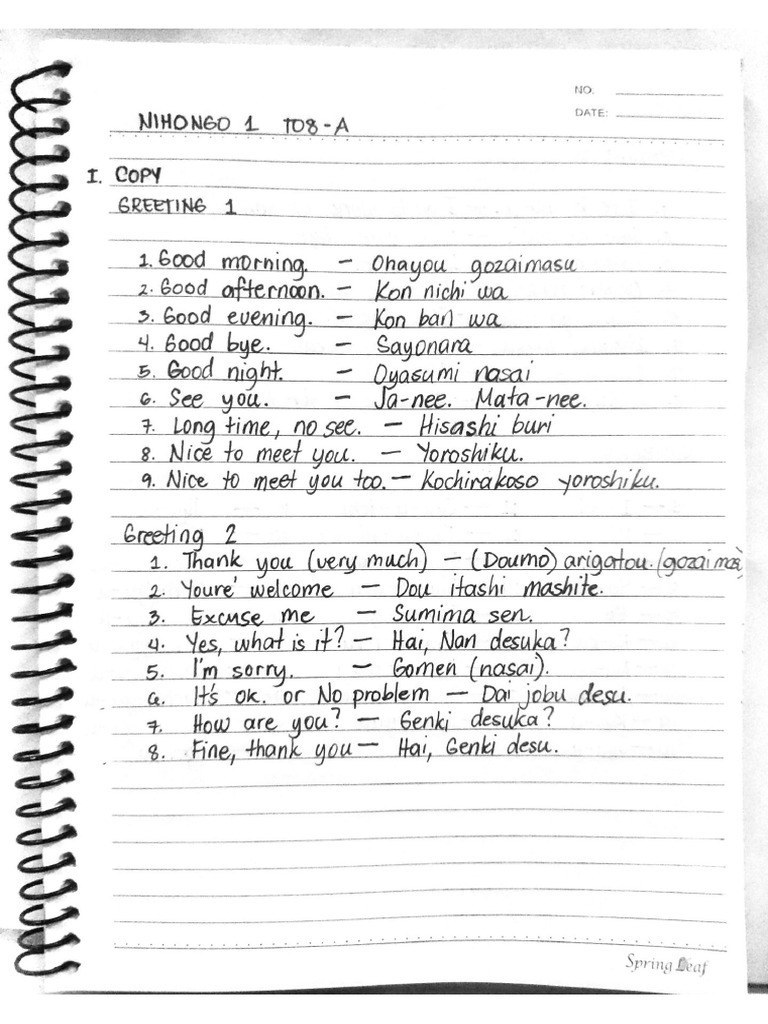 NO.
DATE:
NIHONGO 1 T08-A
I. COPY
GREETING 1
1. Good morning. - Ohayou gozaimasu
2. Good afternoon. - Kon nichi wa
3. Good evening. - Kon ban wa
4. Good bye. - Sayonara
5. Good night. - Oyasumi nasai
6. See you. - Ja-nee. Mata-nee.
7. Long time, no see. - Hisashi buri
8. Nice to meet you. - Yoroshiku.
9. Nice to meet you too. - Kochirakoso yoroshiku.
Greeting 2
1. Thank you (very much) - (Doumo) arigatou. (gozaimas)
2. Youre' welcome - Dou itashi mashite.
3. Excuse me - Sumima sen.
4. Yes, what is it? - Hai, Nan desuka?
5. I'm sorry. - Gomen (nasai).
6. It's ok. or No problem - Dai jobu desu.
7. How are you? - Genki desuka?
8. Fine, thank you - Hai, Genki desu.
Spring Leaf